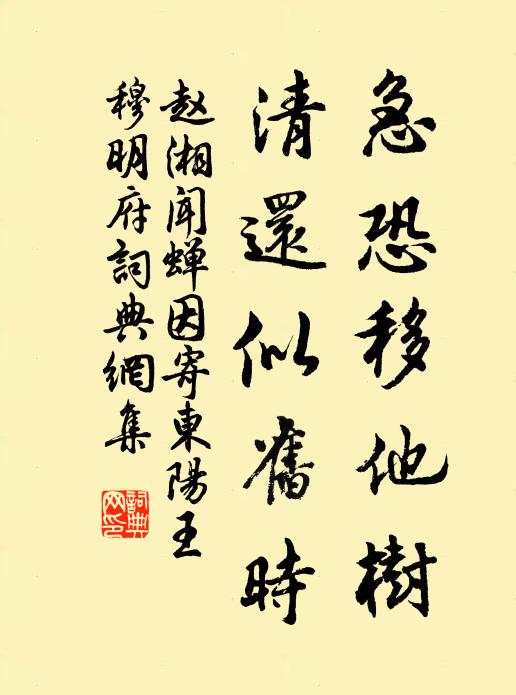 急恐移他樹
清還似舊時
赵湘闻蝉因寄東陽王
穆明府詞典網集
詞典
网印